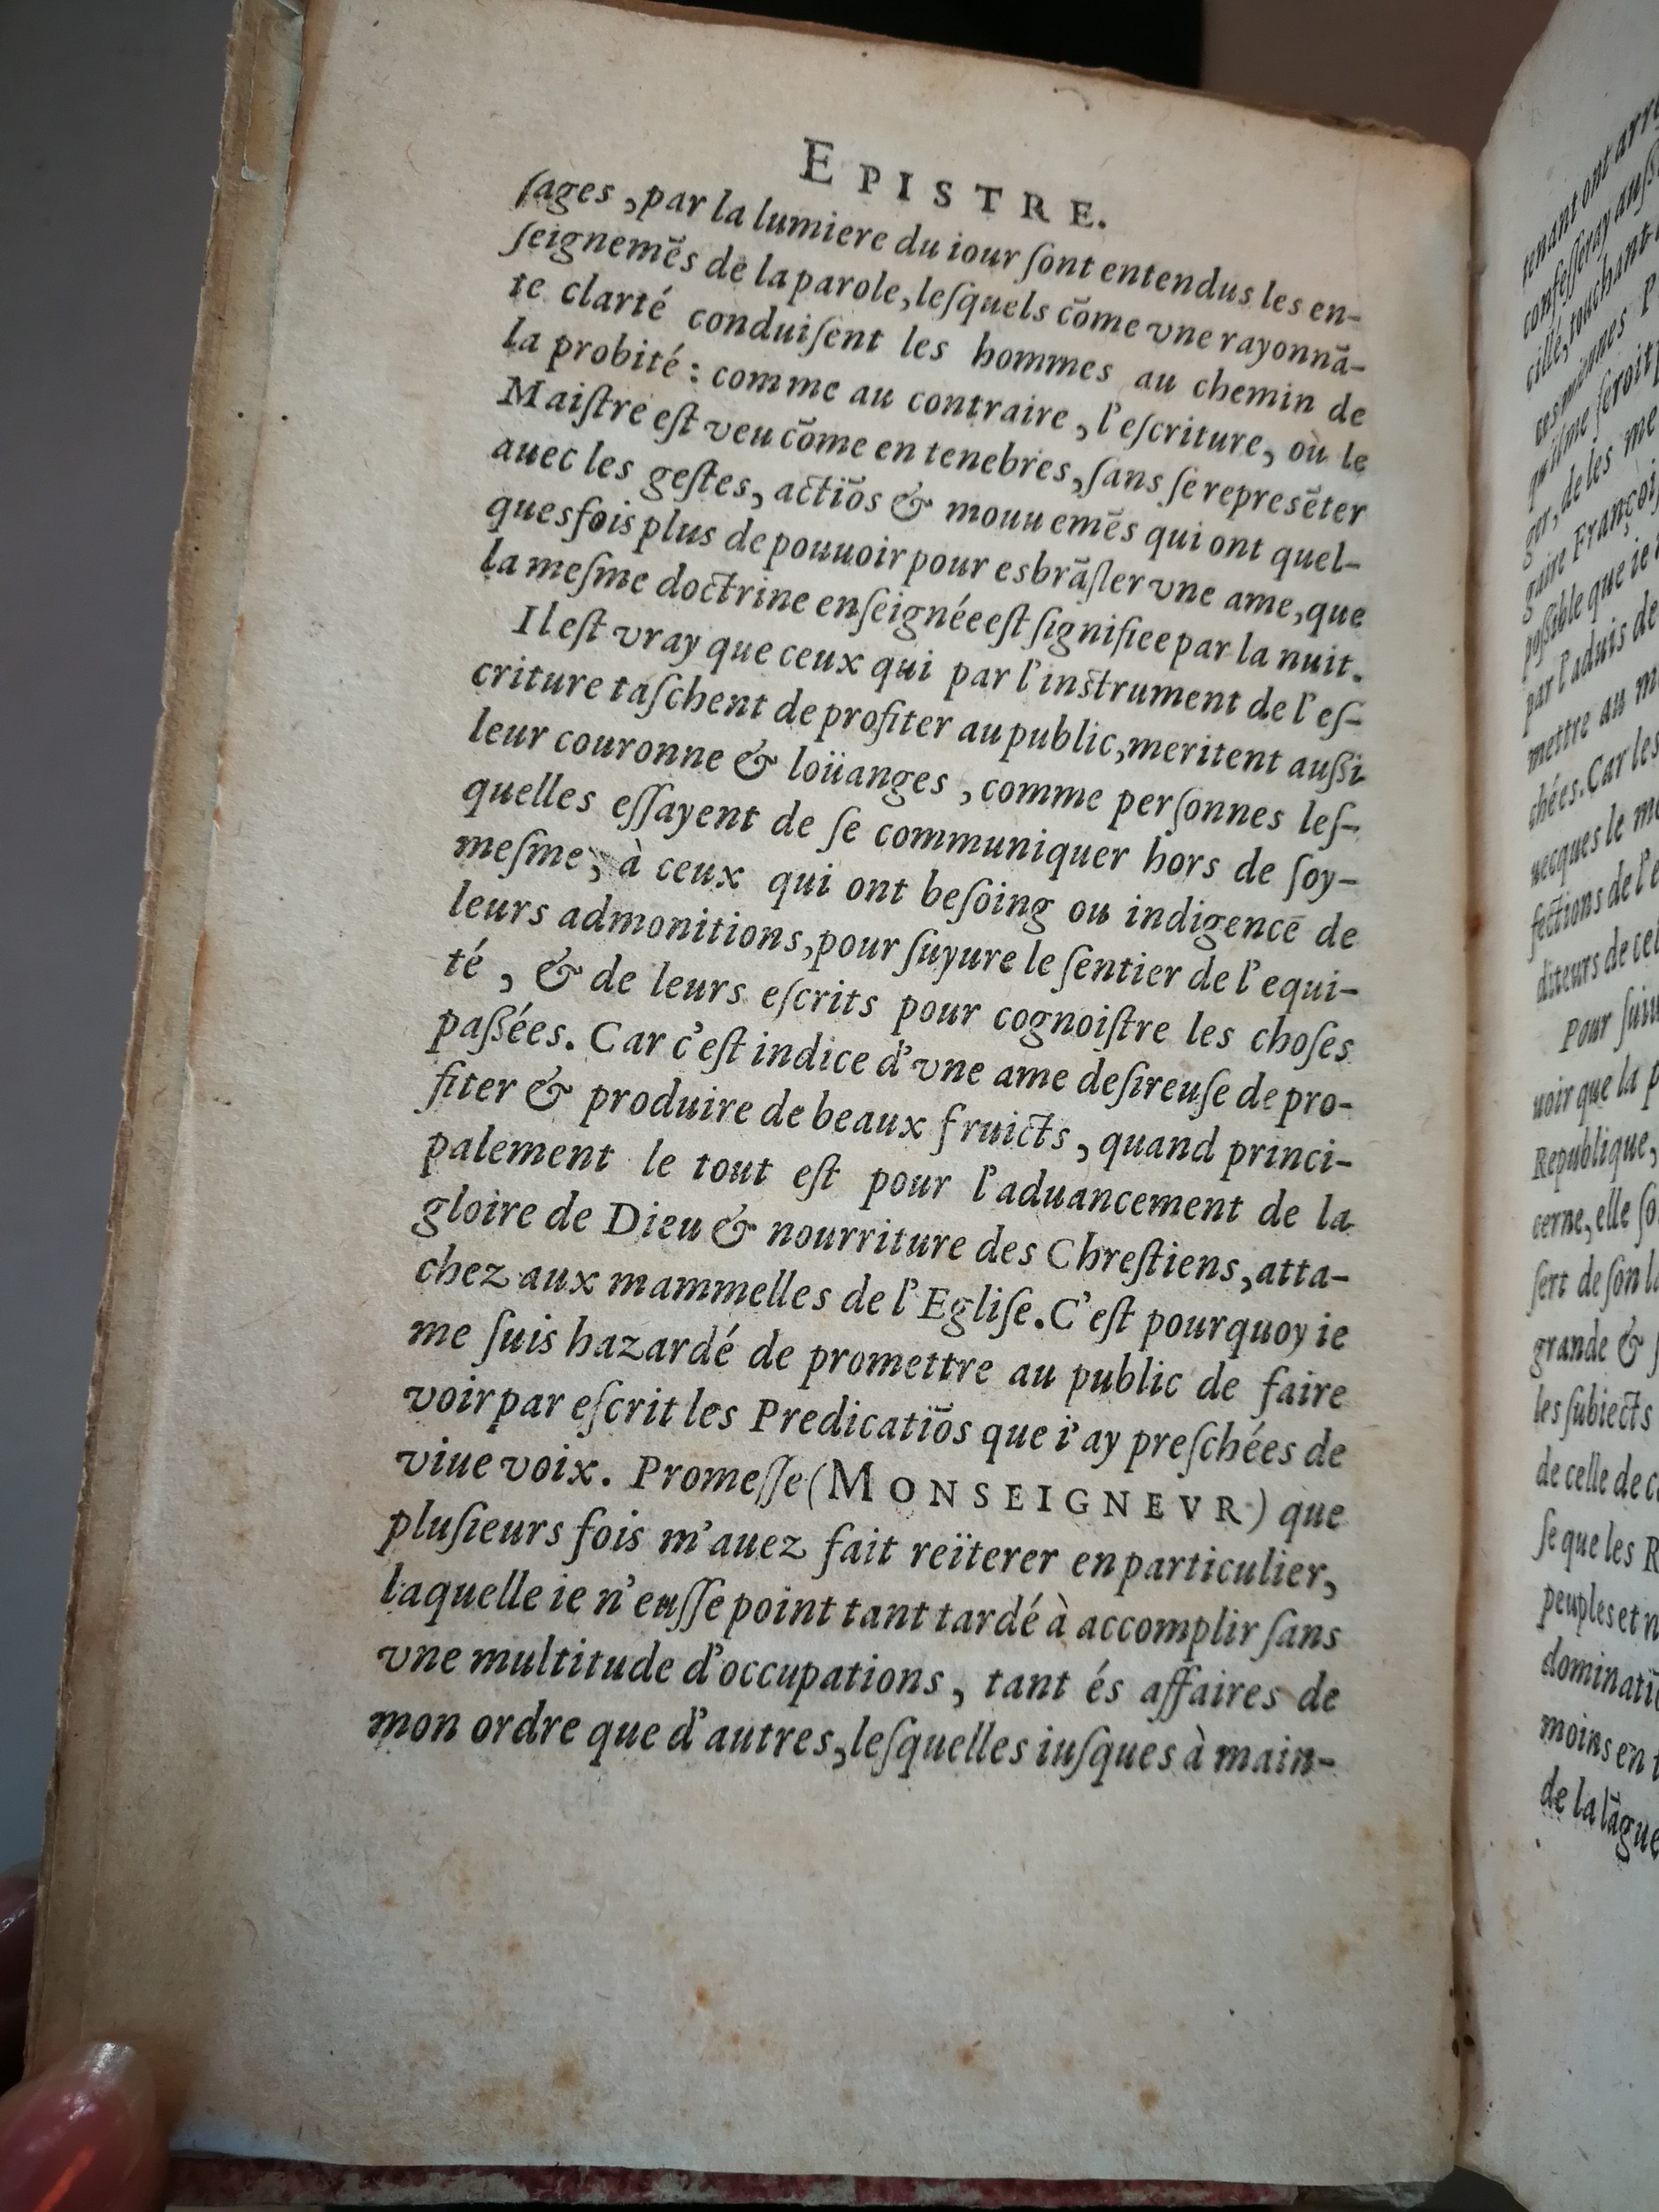 EPISTRE.
ſages, par la lumiere du iour ſont entendus les en-
ſeignemẽs de la parole, leſquels cõme vne rayonnã-
te clarté conduiſent les hommes au chemin de
la probité : comme au contraire, l'eſcriture, où le
Maiſtre eſt veu cõme en tenebres, ſans ſe represẽter
auec les geſtes, actiõs & mouuemẽs qui ont quel-
quesfois plus de pouuoir pour esbrãſler vne ame, que
la meſme doctrine enſeignée eſt ſignifiee par la nuit.
Il eſt vray que ceux qui par l'inſtrument de l'eſ-
criture taſchent de profiter au public, meritent außi
leur couronne & loüanges, comme perſonnes leſ-
quelles eſſayent de ſe communiquer hors de ſoy-
meſme, à ceux qui ont beſoing ou indigence de
leurs admonitions, pour ſuyure le ſentier de l'equi-
té, & de leurs eſcrits pour cognoiſtre les choſes
paßées. Car c'eſt indice d'vne ame deſireuſe de pro-
fiter & produire de beaux fruicts, quand princi-
palement le tout eſt pour l'aduancement de la
gloire de Dieu & nourriture des Chreſtiens, atta-
chez aux mammelles de l'Egliſe. C'eſt pourquoy ie
me ſuis hazardé de promettre au public de faire
voir par eſcrit les Predicatiõs que i'ay preſchées de
viue voix. Promeſſe (MONSEIGNEVR) que
pluſieurs fois m'auez fait reïterer en particulier,
laquelle ie n'euſſe point tant tardé à accomplir ſans
vne multitude d'occupations, tant és affaires de
mon ordre que d'autres, leſquelles iuſques à main-
tenant ont
confeſſeray
cillé, touchant
ger, de les
poßible que ie
par l'aduis de
mettre au
chées. Car les
necques le
fections de l'
diteurs de
Pour
uoir que la
Republique,
cerne, elle
ſert de ſon
grande &
les ſubiects
de celle de
ſe que les
peuples et
moins en
de la lãgue